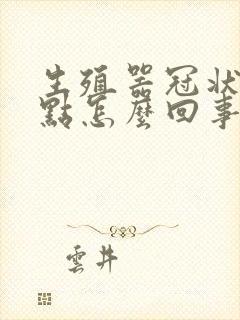 生殖器冠狀
點怎麼回事
雲井